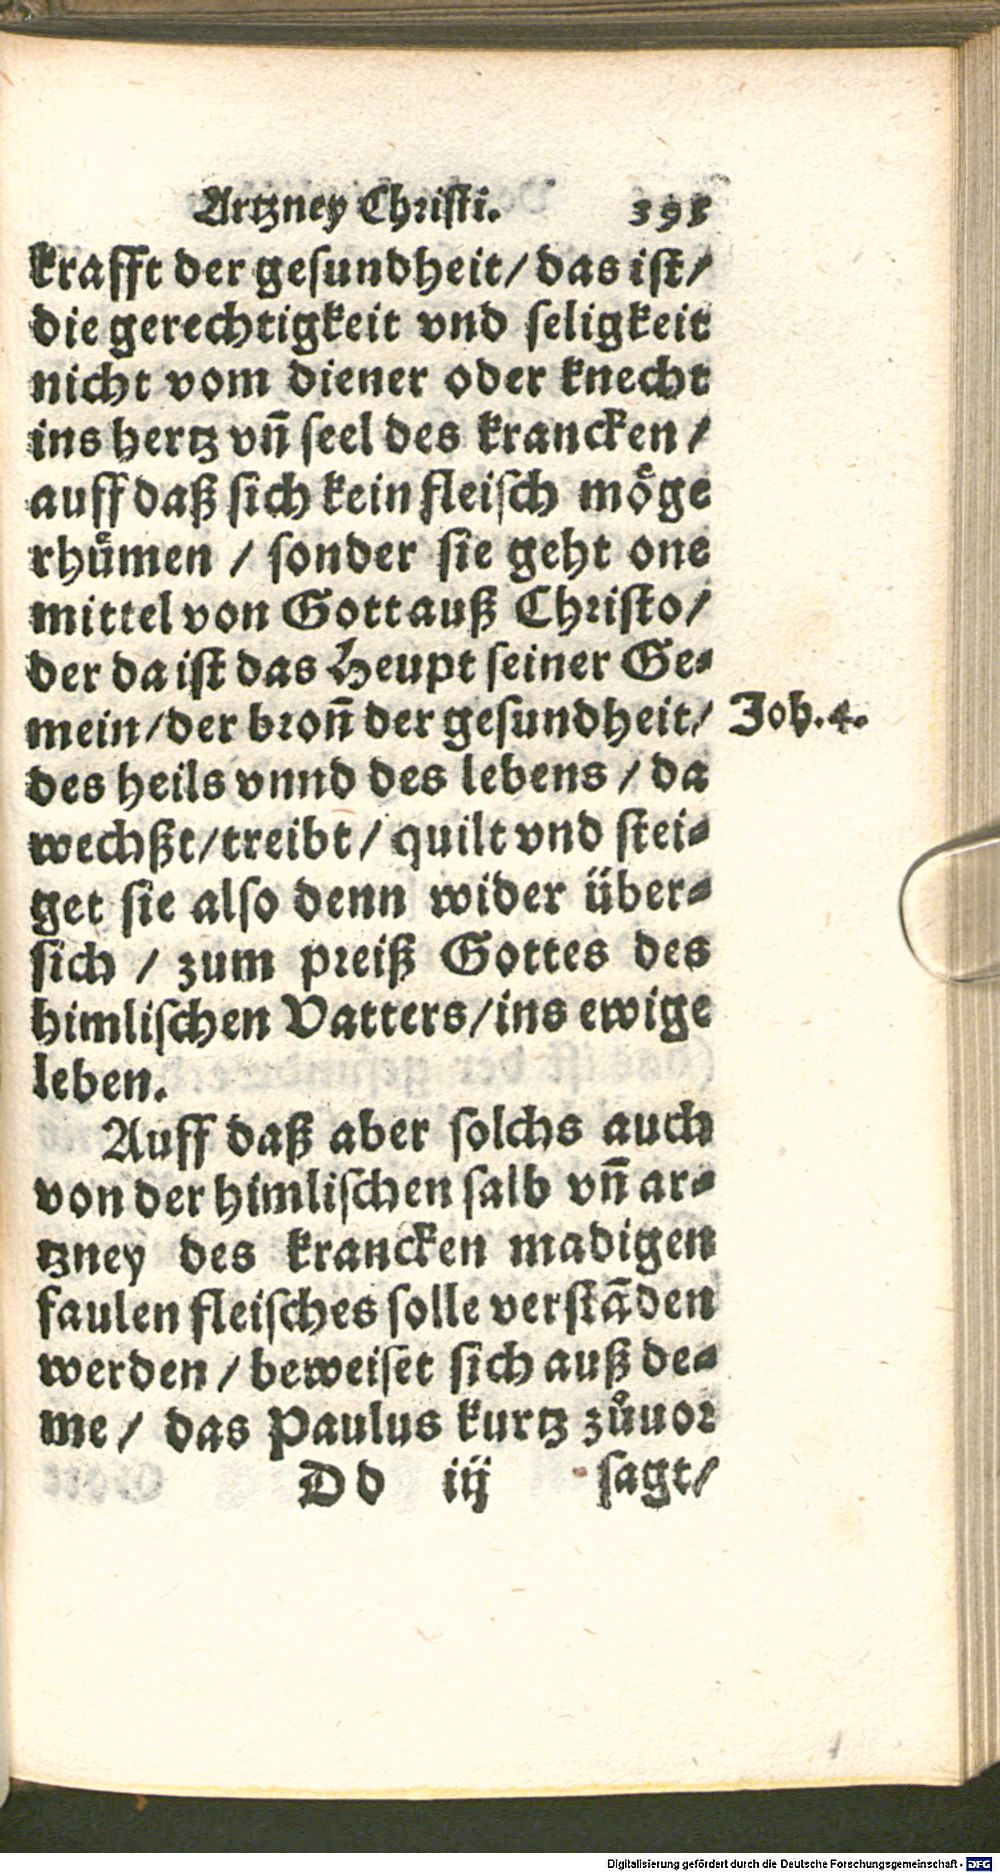 Artzney Christi. 395
krafft der geſundheit/ das iſt/
die gerechtigkeit vnd ſeligkeit
nicht vom diener oder knecht
ins hertz vn̄ ſeel des krancken/
auff daß ſich kein fleiſch moͤge
rhuͤmen / ſonder ſie geht one
mittel von Gott auß Chꝛiſto/
der da iſt das Heupt ſeiner Ge⸗
mein/der bꝛon̄ der geſundheit/ Joh.4.
des heils vnnd des lebens / da
wechßt/treibt/ quilt vnd ſtei⸗
get ſie alſo denn wider über⸗
ſich / zum pꝛeiß Gottes des
himliſchen Vatters/ins ewige
leben.
Auff daß aber ſolchs auch
von der himliſchen ſalb vn̄ ar⸗
tzney des krancken madigen
faulen fleiſches ſolle verſtāden
werden / beweiſet ſich auß de⸗
me/ das Paulus kurtz zůuoꝛ
Dd iij ſagt/
Digitalisierung gefördert durch die Deutsche Forschungsgemeinschaft - DFG